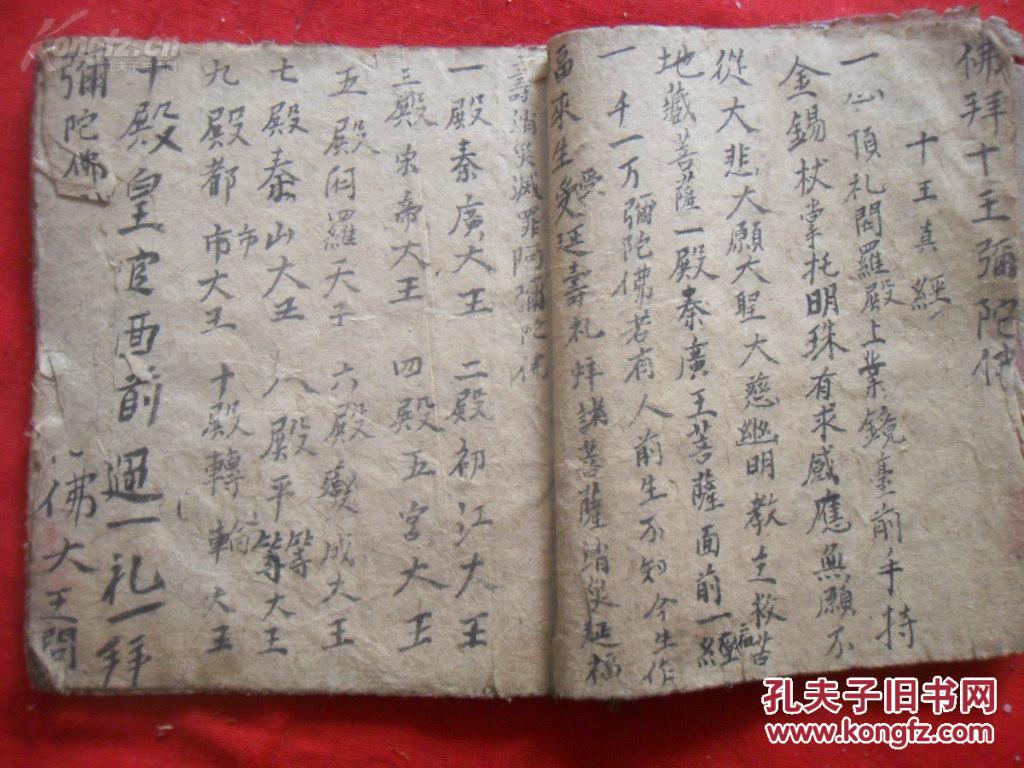 佛拜十王彌陀佛
十王真經
一心頂礼閻羅殿上業鏡臺前手持
金錫杖掌托明珠有求感應無願不
從大悲大願大聖大慈幽明教主救苦
地藏菩薩一殿秦廣王菩薩面前一經
一千一万彌陀佛若有人前生不知今生作
畐來生受延壽礼拜諸菩薩消災延福
受
壽消災滅罪阿彌陀佛
一殿秦廣大王 二殿初江大王
三殿宋帝大王 四殿五宮大王
五殿閻羅天子 六殿嶽成大王
七殿泰山大王 八殿平等大王
等
九殿都市大王 十殿轉輪大王
市
十殿皇官西前迴一礼一拜
彌陀佛
佛大王問
Kongfz.cn
孔夫子旧书网
孔夫子旧书网
www.kongfz.com